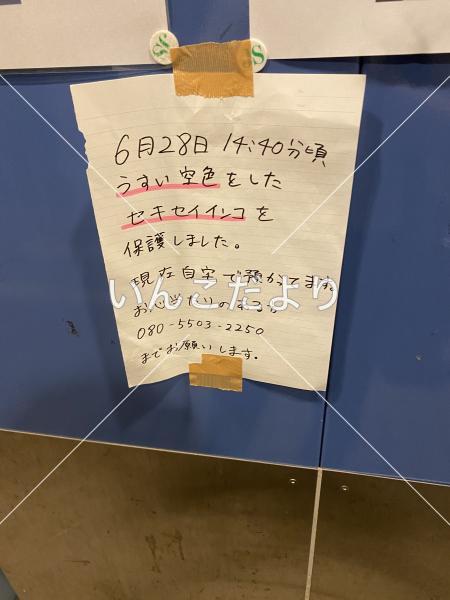 6月28日 14:40分頃
うすい空色をした
セキセイインコを
保護しました。
現在自宅で預かてます。
お心当たりのある方
いんこだより
080-5503-2250
までお願いします。